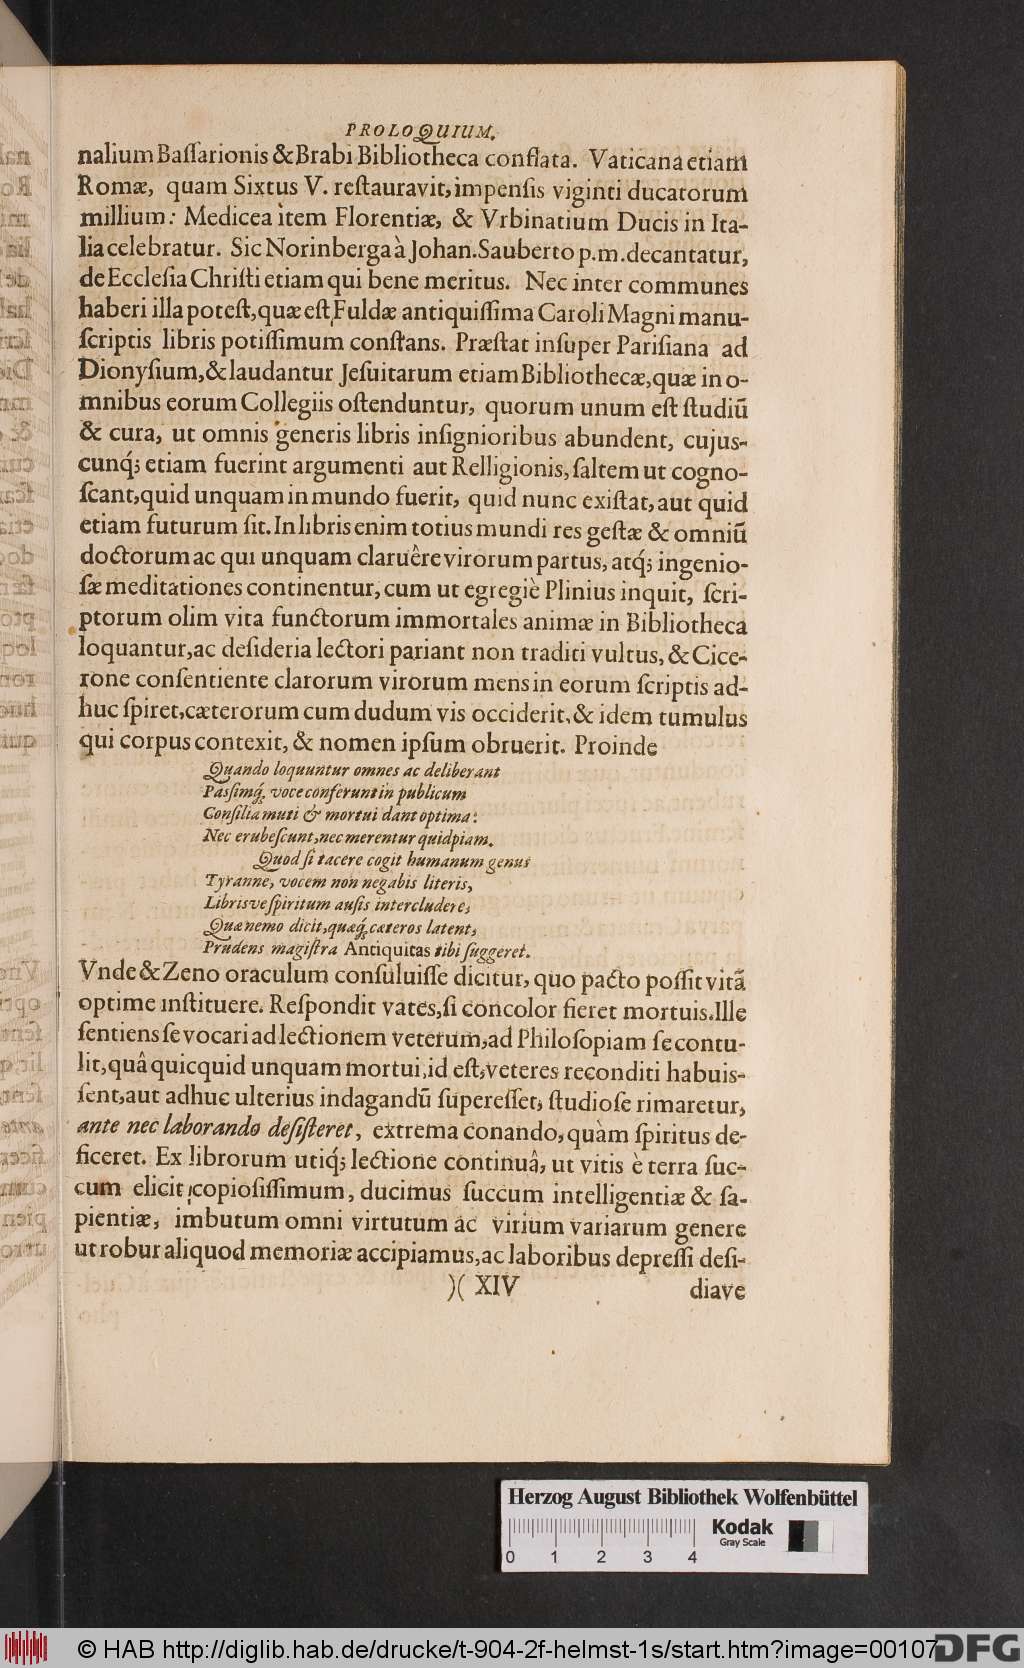 PROLOQUIUM.
nalium Baſſarionis & Brabi Bibliotheca conflata. Vaticana etiam
Romæ, quam Sixtus V. reſtauravit, impenſis viginti ducatorum
millium: Medicea item Florentiæ, & Vrbinatium Ducis in Ita-
lia celebratur. Sic Norinberga à Johan. Sauberto p. m. decantatur,
de Eccleſia Chriſti etiam qui bene meritus. Nec inter communes
haberi illa poteſt, quæ eſt Fuldæ antiquiſſima Caroli Magni manu-
ſcriptis libris potiſſimum conſtans. Præſtat inſuper Pariſiana ad
Dionyſium, & laudantur Jeſuitarum etiam Bibliothecæ, quæ in o-
mnibus eorum Collegiis oſtenduntur, quorum unum eſt ſtudiũ
& cura, ut omnis generis libris inſignioribus abundent, cujus-
cunq́; etiam fuerint argumenti aut Relligionis, ſaltem ut cogno-
ſcant, quid unquam in mundo fuerit, quid nunc exiſtat, aut quid
etiam futurum ſit. In libris enim totius mundi res geſtæ & omniũ
doctorum ac qui unquam claruêre virorum partus, atq́; ingenio-
ſæ meditationes continentur, cum ut egregiè Plinius inquit, ſcri-
ptorum olim vita functorum immortales animæ in Bibliotheca
loquantur, ac deſideria lectori pariant non traditi vultus, & Cice-
rone conſentiente clarorum virorum mens in eorum ſcriptis ad-
huc ſpiret, cæterorum cum dudum vis occiderit, & idem tumulus
qui corpus contexit, & nomen ipſum obruerit. Proinde
Quando loquuntur omnes ac deliberant
Paſſimq́; voce conferunt in publicum
Conſilia muti & mortui dant optima:
Nec erubeſcunt, nec merentur quidpiam.
Quod ſi tacere cogit humanum genus
Tyranne, vocem non negabis literis,
Librisve ſpiritum auſis intercludere,
Quæ nemo dicit, quæq́; cæteros latent,
Prudens magiſtra Antiquitas tibi ſuggeret.
Vnde & Zeno oraculum conſuluiſſe dicitur, quo pacto poſſit vitã
optime inſtituere. Reſpondit vates, ſi concolor fieret mortuis. Ille
ſentiens ſe vocari ad lectionem veterum, ad Philoſopiam ſe contu-
lit, quâ quicquid unquam mortui, id eſt, veteres reconditi habuis-
ſent, aut adhuc ulterius indagandũ ſupereſſet, ſtudioſe rimaretur,
ante nec laborando deſiſteret, extrema conando, quàm ſpiritus de-
ficeret. Ex librorum utiq́; lectione continuâ, ut vitis è terra ſuc-
cum elicit copioſiſſimum, ducimus ſuccum intelligentiæ & ſa-
pientiæ, imbutum omni virtutum ac virium variarum genere
ut robur aliquod memoriæ accipiamus, ac laboribus depreſſi deſi-
)( XIV
diave
Herzog August Bibliothek Wolfenbüttel
Kodak
Gray Scale
0 1 2 3 4
© HAB http://diglib.hab.de/drucke/t-904-2f-helmst-1s/start.htm?image=00107
DFG